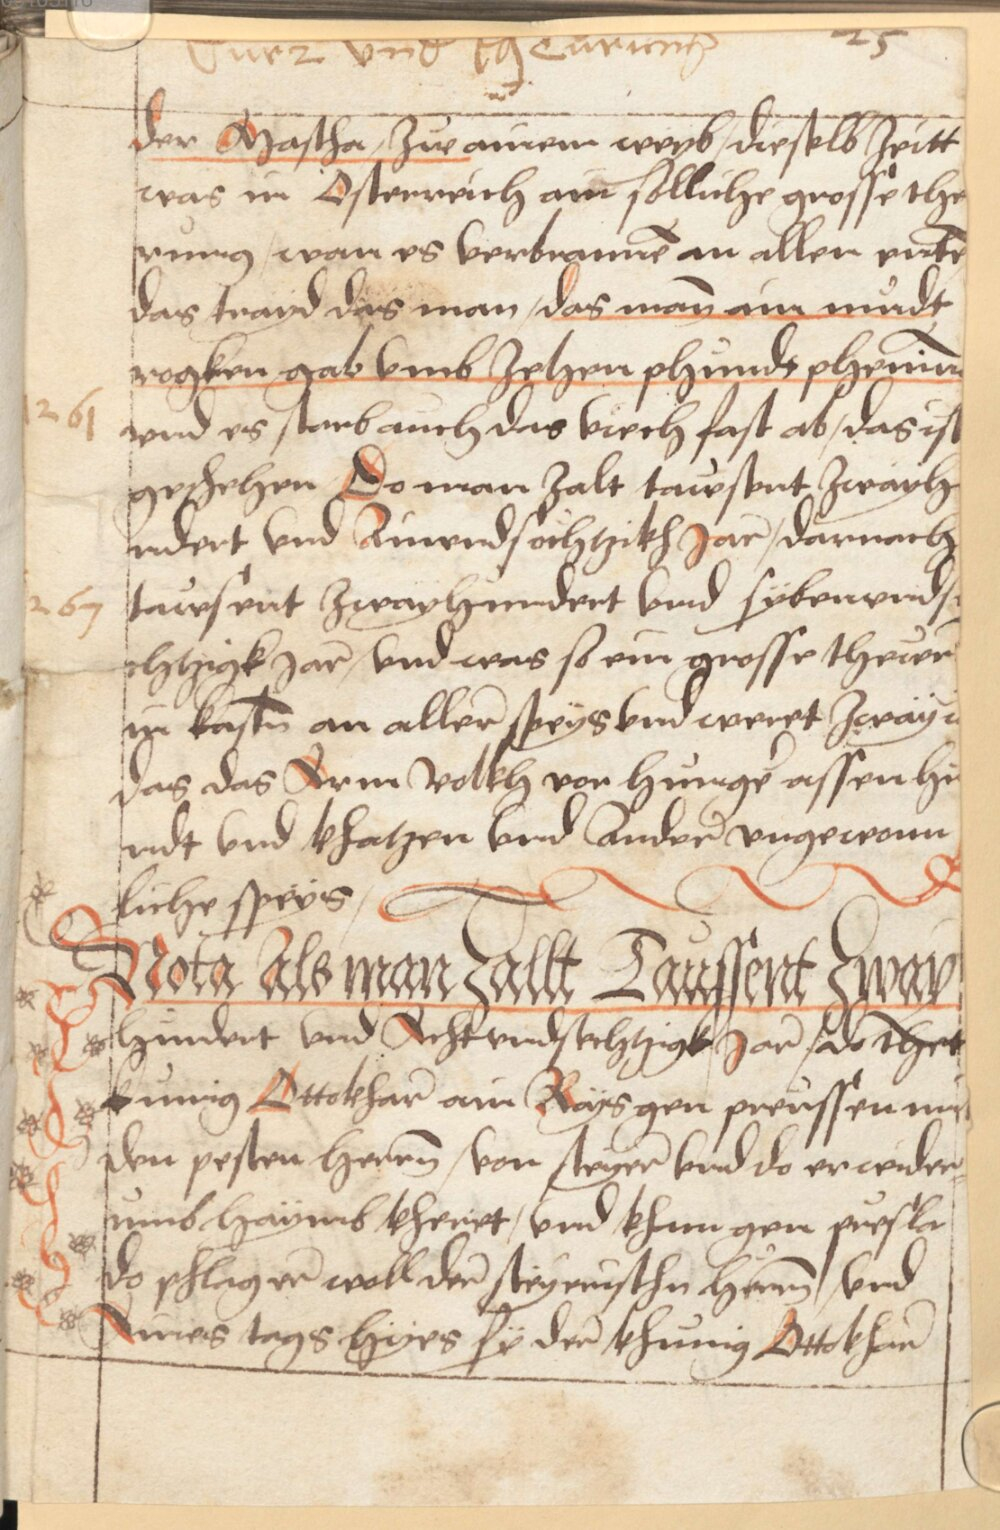 25
der Mascha / zue ainem weyb / dieselb zeitt
was in Osterreich ain solliche grosse the
rung / wan es verbranne an allen ennte
das trayd das man / das man ain mudt
rogken gab vmb zehen phundt phenin
1261
vnd es starb auch das viech fast ab / das ist
geschehen Do man zalt tausent zwayh
ndert vnd Ainvndsechtzikh jar / darnach
1267
tausent zwayhundert vnd sybenvnds
echtzigk jar / vnd was so ein grosse thewr
in kastn an aller speys vnd weret zway
das das Arm volkh vor hunger assen hu
ndt vnd khatzen vnd Ander vngewonn
liche speys /
Nota Als man zallt Taussent zway
hundert vnd Acht vndsechtzigk jar / do thet
kunig Ottokhar ain Rays gen preussen mit
den pesten herrn / von steyer vnd do er wider
vmb haymb kheret / vnd kham gen presla
do phlag er woll der steyrischn herrn / vnd
Aines tags hyes sy der khunig Ottokhar